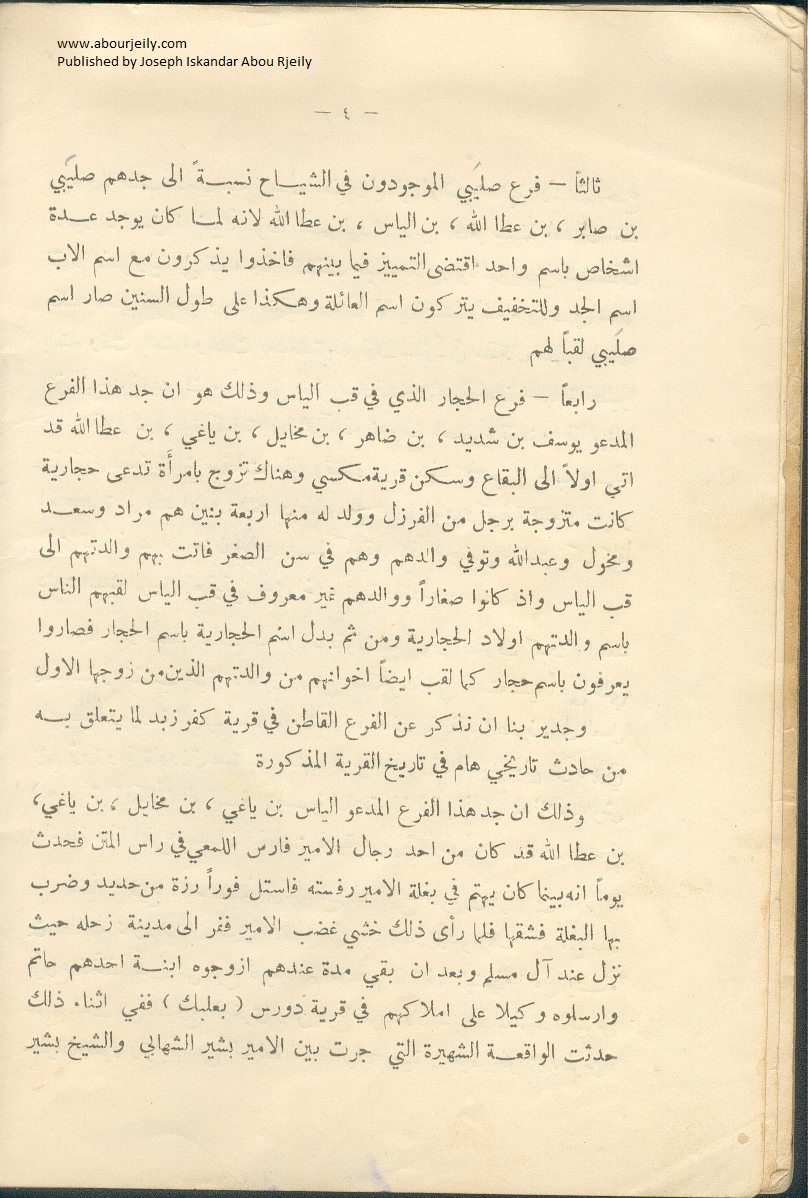 www.abourjeily.com
Published by Joseph Iskandar Abou Rjeily
— ٤ —
ثالثاً — فرع صليَبي الموجودون في الشيــاح نسبــةً الى جدهم صليَبي
بن صابر ، بن عطا الله ، بن الياس ، بن عطا الله لانه لمــا كان يوجد عــدة
اشخاص باسم واحد اقتضى التمييز فيما بينهم فاخذوا يذكرون مع اسم الاب
اسم الجد وللتخفيف يتركون اسم العائلة وهكذا على طول السنين صار اسم
صليَبي لقباً لهم
رابعاً — فرع الحجار الذي في قب الياس وذلك هو ان جد هذا الفرع
المدعو يوسف بن شديد ، بن ضاهر ، بن مخايل ، بن ياغي ، بن عطا الله قد
اتي اولاً الى البقاع وسكن قرية مكسي وهناك تزوج بامرأة تدعى حجارية
كانت متزوجة برجل من الفرزل وولد له منها اربعة بنين هم مراد وسعــد
ومخول وعبدالله وتوفي والدهم وهم في سن الصغر فاتت بهم والدتهم الى
قب الياس واذ كانوا صغاراً ووالدهم غير معروف في قب الياس لقبهم الناس
باسم والدتهم اولاد الحجارية ومن ثم بدل اسم الحجارية باسم الحجار فصاروا
يعرفون باسم حجار كما لقب ايضاً اخوانهم من والدتهم الذين من زوجها الاول
وجدير بنا ان نذكر عن الفرع القاطن في قرية كفر زبد لما يتعلق بــه
من حادث تاريخي هام في تاريخ القرية المذكورة
وذلك ان جد هذا الفرع المدعو الياس بن ياغي ، بن مخايل ، بن ياغي،
بن عطا الله قد كان من احد رجال الامير فارس اللمعي في راس المتن فحدث
يوماً انه بينما كان يهتم في بغلة الامير رفسته فاستل فوراً رزة من حديد وضرب
بها البغلة فشقها فلما رأى ذلك خشي غضب الامير ففر الى مدينة زحله حيث
نزل عند آل مسلم وبعد ان بقي مدة عندهم ازوجوه ابنــة احدهم حاتم
وارسلوه وكيلا على املاكهم في قرية دورس ( بعلبك ) ففي اثناء ذلك
حدثت الواقعــة الشهيرة التي جرت بين الامير بشير الشهابي والشيخ بشير